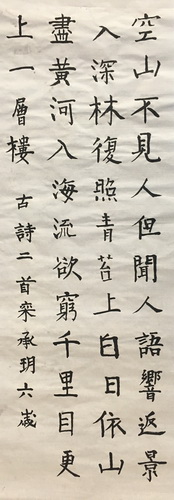 空山不見人但聞人語響返景
入深林復照青苔上白日依山
盡黃河入海流欲窮千里目更
上一層樓 古詩二首栾承玥六歲